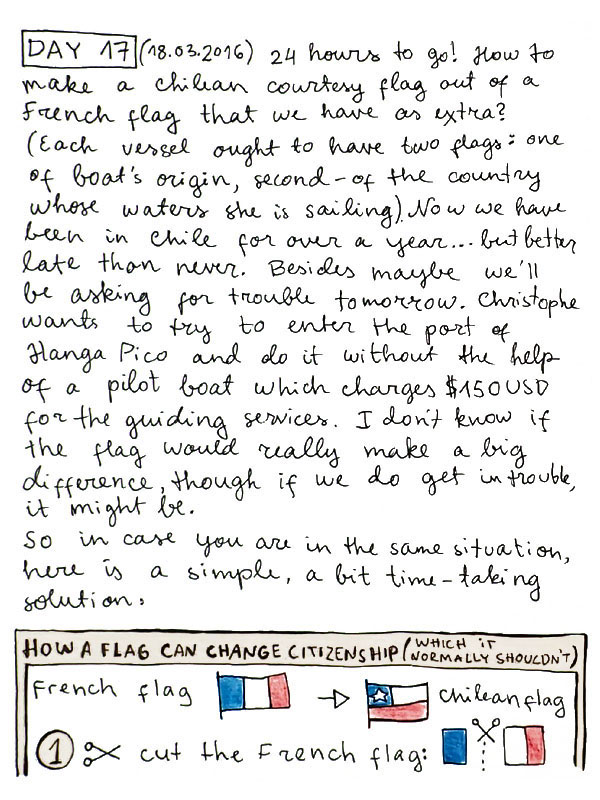 DAY 17 (18.03.2016) 24 hours to go! How to
make a chilean courtesy flag out of a
French flag that we have as extra?
(Each vessel ought to have two flags: one
of boat's origin, second - of the country
whose waters she is sailing). Now we have
been in Chile for over a year... but better
late than never. Besides maybe we'll
be asking for trouble tomorrow. Christophe
wants to try to enter the port of
Hanga Pico and do it without the help
of a pilot boat which charges $150 USD
for the guiding services. I don't know if
the flag would really make a big
difference, though if we do get in trouble,
it might be.
So in case you are in the same situation,
here is a simple, a bit time-taking
solution:
HOW A FLAG CAN CHANGE CITIZENSHIP (WHICH IT NORMALLY SHOULDN'T)
French flag → chilean flag
1 cut the French flag: